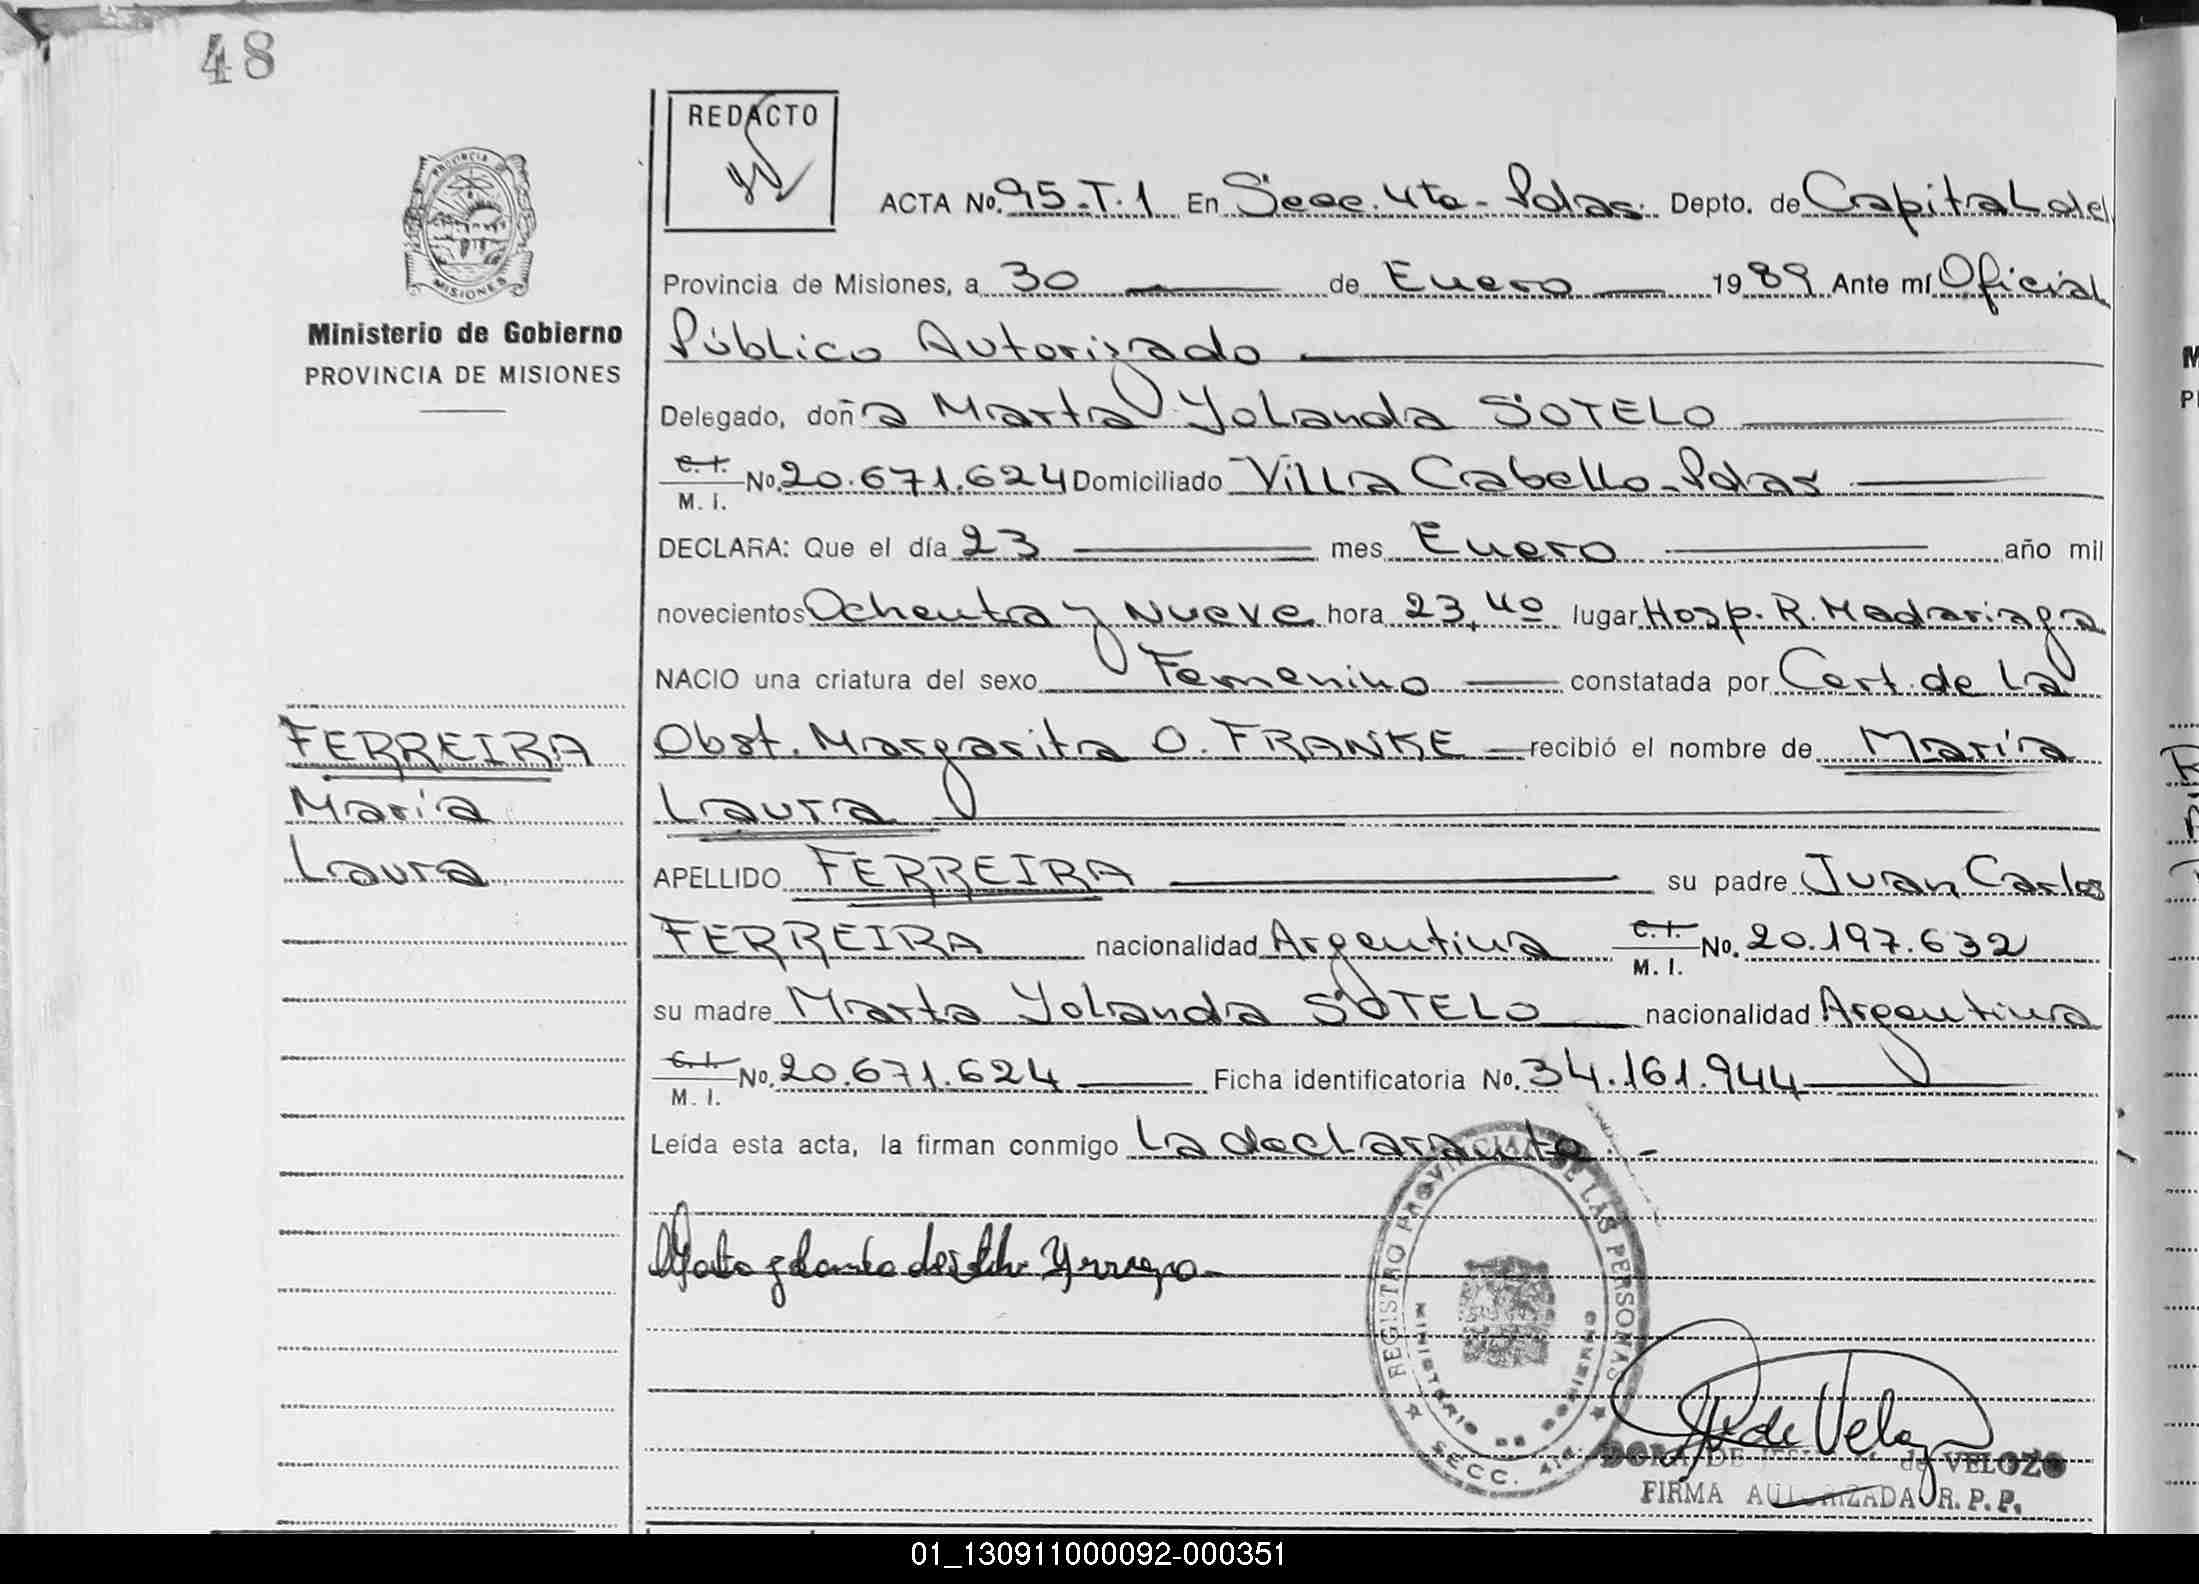 48
REDACTO
PROVINCIA
MISIONES
Ministerio de Gobierno
PROVINCIA DE MISIONES
ACTA No. 95-T.1 En Secc. 4ta - Pdas. Depto. de Capital del
Provincia de Misiones, a 30 de Enero 1989 Ante mí Oficial
Público Autorizado
Delegado, doña Marta Yolanda SOTELO
C.I. M. I. No. 20.671.624 Domiciliado Villa Cabello - Pdas
DECLARA: Que el día 23 mes Enero año mil
novecientos Ochenta y Nueve hora 23,40 lugar Hosp. R. Madariaga
NACIO una criatura del sexo Femenino constatada por Cert. de la
Obst. Margarita O. FRANKE recibió el nombre de María
Laura
FERREIRA
María
Laura
APELLIDO FERREIRA su padre Juan Carlos
FERREIRA nacionalidad Argentina C.I. M. I. No. 20.197.632
su madre Marta Yolanda SOTELO nacionalidad Argentina
C.I. M. I. No. 20.671.624 Ficha identificatoria No. 34.161.944
Leída esta acta, la firman conmigo la declarante.-
REGISTRO PROVINCIAL DE LAS PERSONAS
MINISTERIO DE GOBIERNO
SECC. 4ta
de Velozo
DORA DE de VELOZO
FIRMA AUTORIZADA R. P. P.
01_130911000092-000351